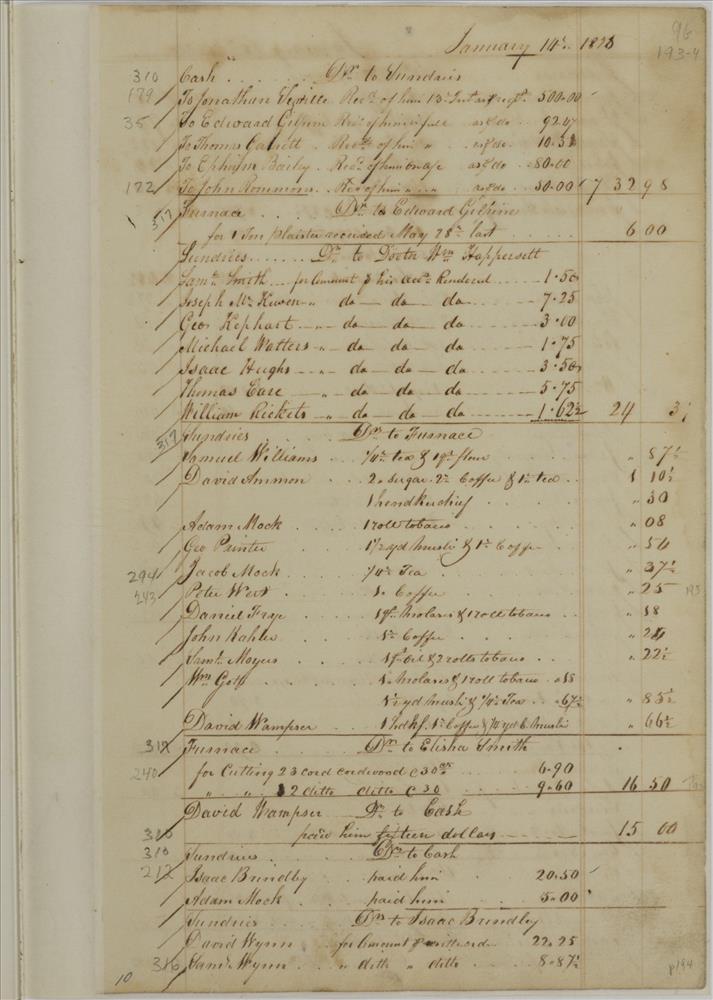 January 14th 1828
96
193-4
310 Cash . . . . . Dr to Sundries
179 To Jonathan Recd of him 13th Inst 500.00
35 To Edward Gilpin Recd of him in full as p do 92.47
To Thomas Garrett Recd of him " as p do 10.51
To Ephraim Bailey . Recd of him as p do 80.00
172 To John Rommons . . Recd of him " " as p do 50.00 732 98
317 Furnace . . . . Dr to Edward Gilpin
for 1 Ton plaister received May 28th last 6 00
Sundries . . . . . . Dr to Doctor Wm Happersett
Saml Smith for amount of his acct Rendered 1.50
Joseph Mc Kewen " do do do 7.25
Geo Kephart " do do do 3.00
Michael Watters " do do do 1.75
Isaac Hughs " do do do 3.50
Thomas Care " do do do 5.75
William Rickets " do do do 1.62½ 24 37
317 Sundries . . . . . Drs to Furnace
Samuel Williams . . ¼ lb tea & 19 lb flour " 87½
David Ammon . . . 2 lb sugar 2 lb Coffee & 1 lb tea 1 10½
1 hendkuchief " 30
Adam Mock . . . . 1 roll tobaco " 08
Geo Painter . . . . 1½ yd musli & 1 lb Coffe " 54
294 Jacob Mock . . . . ¼ lb Tea " 37½
243 Peter Wert . . . . 1 lb Coffee " 25 193
Daniel Frye . . . . 1 qt molases & 1 roll tobaco " 18
John Kahler . . . . 1 lb Coffee " 24
Saml Moyers . . . . 1 pt oil & 2 rolls tobaco " 22½
Wm Golf . . . . molases & 1 roll tobaco " 18
yd musli & ¼ lb Tea " 67½ " 85½
David Wampser . . . 1 hdkf 1 lb Coffee & yd b. musli " 66½
317 Furnace . . . . . Dr to Elisha Smith
240 for Cutting 23 cord cordwood @ 30 cts 6.90
" " 32 ditto ditto @ 30 9.60 16 50
David Wampser Dr to Cash
310 paid him fifteen dollars 15 00
310 Sundries . . . . Drs to Cash
212 Isaac Brindley . . paid him 20.50
Adam Mock . . . paid him 5.00
Sundries . . . . . Drs to Isaac Brindley
David Wynn for amount 22.25
316 Saml Wynn " ditto " ditto 8.87½
10
p194